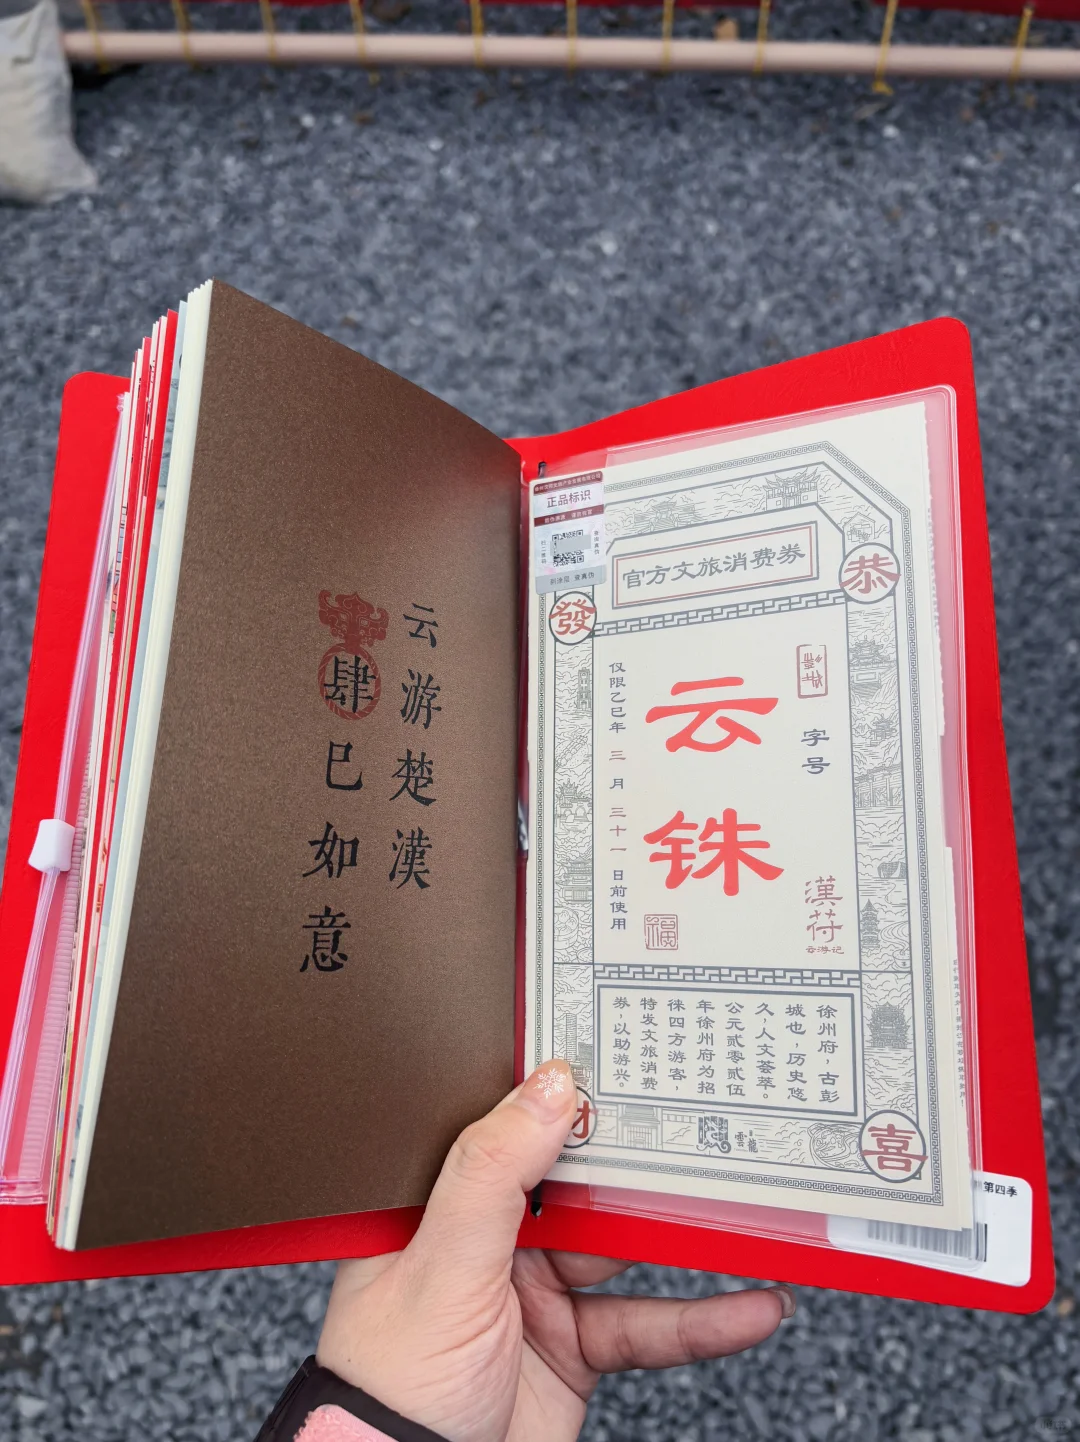 云游楚漢
肆巳如意
正品标识
官方文旅消费券
恭
喜
發
财
字号
云铢
仅限乙巳年 三月 三十一 日前使用
漢符
云游记
徐州府，古彭
城也，历史悠
久，人文荟萃。
公元贰零贰伍
年徐州府为招
徕四方游客，
特发文旅消费
券，以助游兴。
雲龍
第四季